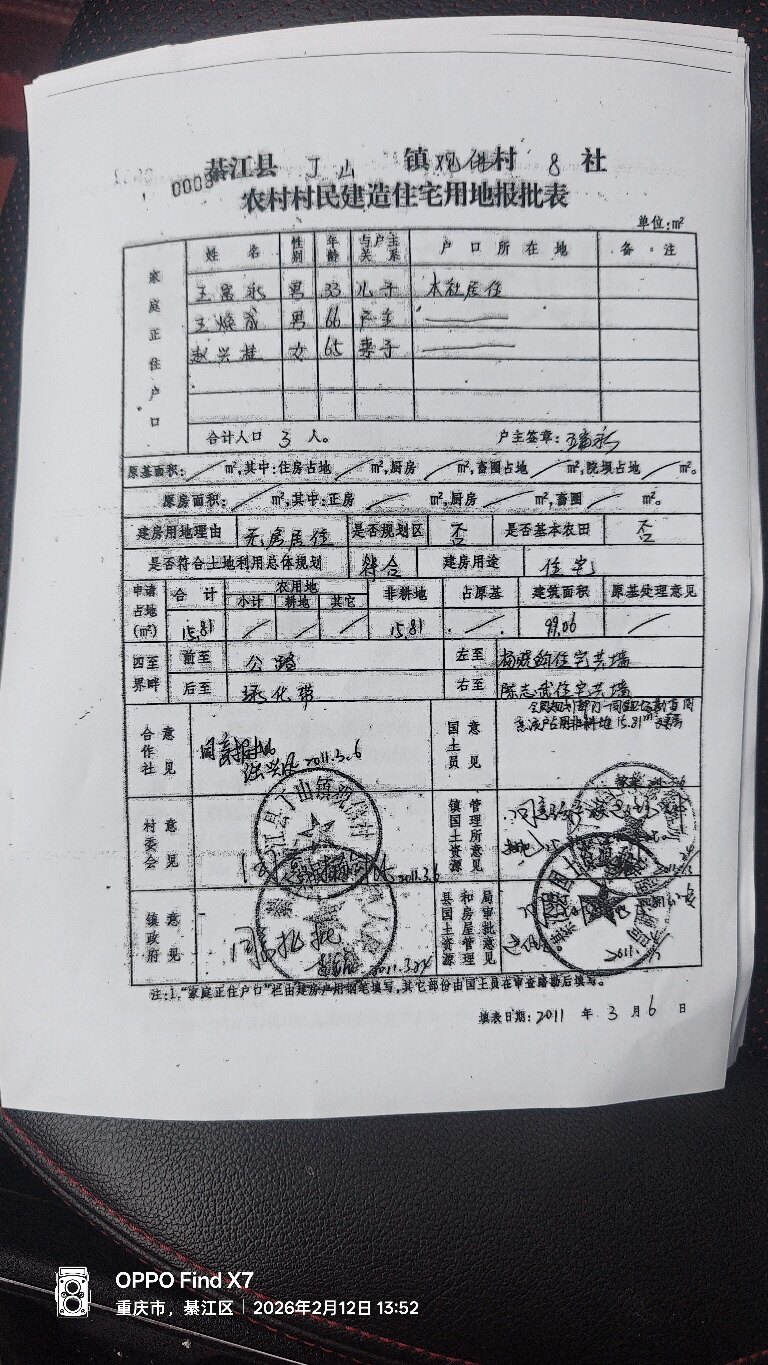 綦江县 丁山 镇 观佛村 8 社
0003
农村村民建造住宅用地报批表
单位:㎡
家庭正住户口
姓名 性别 年龄 与户主关系 户口所在地 备注
王富永 男 33 儿子 本社居住
王焕成 男 66 户主
赵兴桂 女 65 妻子
合计人口 3 人。 户主签章:王富永
原基面积: ㎡,其中:住房占地 ㎡,厨房 ㎡,畜圈占地 ㎡,院坝占地 ㎡。
原房面积: ㎡,其中:正房 ㎡,厨房 ㎡,畜圈 ㎡。
建房用地理由 无房居住 是否规划区 否 是否基本农田 否
是否符合土地利用总体规划 符合 建房用途 住宅
申请占地(㎡) 合计 农用地 非耕地 占原基 建筑面积 原基处理意见
小计 耕地 其它
15.81 / / / 15.81 / 99.06 /
四至界畔 前至 公路 左至 住宅共墙
后至 绿化带 右至 陈志武住宅共墙
合作社意见 同意报批 2011.3.6
国土员意见 占用非耕地15.81㎡
村委会意见 2011.3.6
镇国土资源管理所意见
镇政府意见 同意报批
县国土资源和房屋管理局审批意见 2011.3
注:1."家庭正住户口"栏由建房户用钢笔填写,其它部份由国土员在审查踏勘后填写。
填表日期:2011 年 3 月 6 日
OPPO Find X7
重庆市,綦江区 | 2026年2月12日 13:52